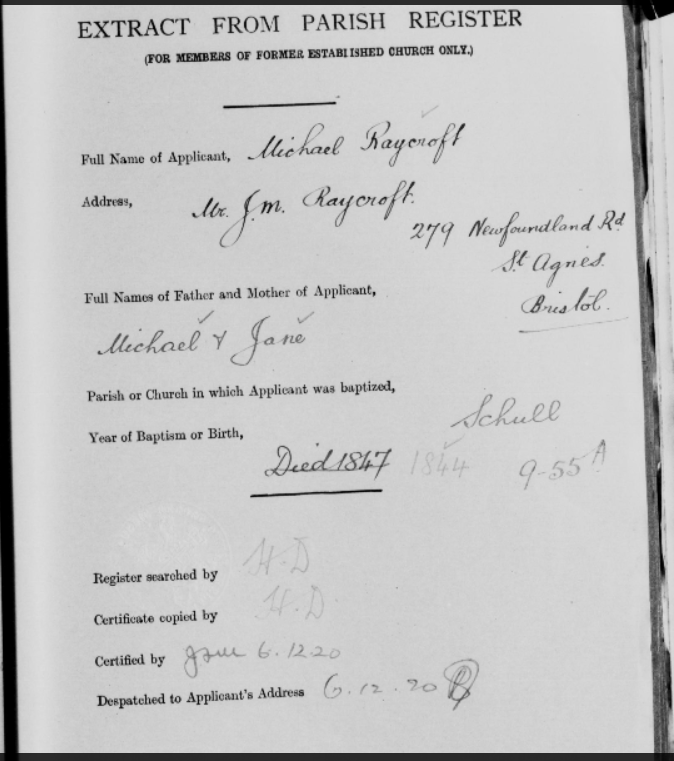 EXTRACT FROM PARISH REGISTER
(FOR MEMBERS OF FORMER ESTABLISHED CHURCH ONLY.)
Full Name of Applicant, Michael Raycroft
Address, Mr. J.M. Raycroft.
279 Newfoundland Rd
St Agnes.
Bristol.
Full Names of Father and Mother of Applicant,
Michael & Jane
Parish or Church in which Applicant was baptized,
Schull
Year of Baptism or Birth,
Died 1847 1844 9-55 A
Register searched by H.D
Certificate copied by H.D
Certified by 6.12.20
Despatched to Applicant's Address 6.12.20